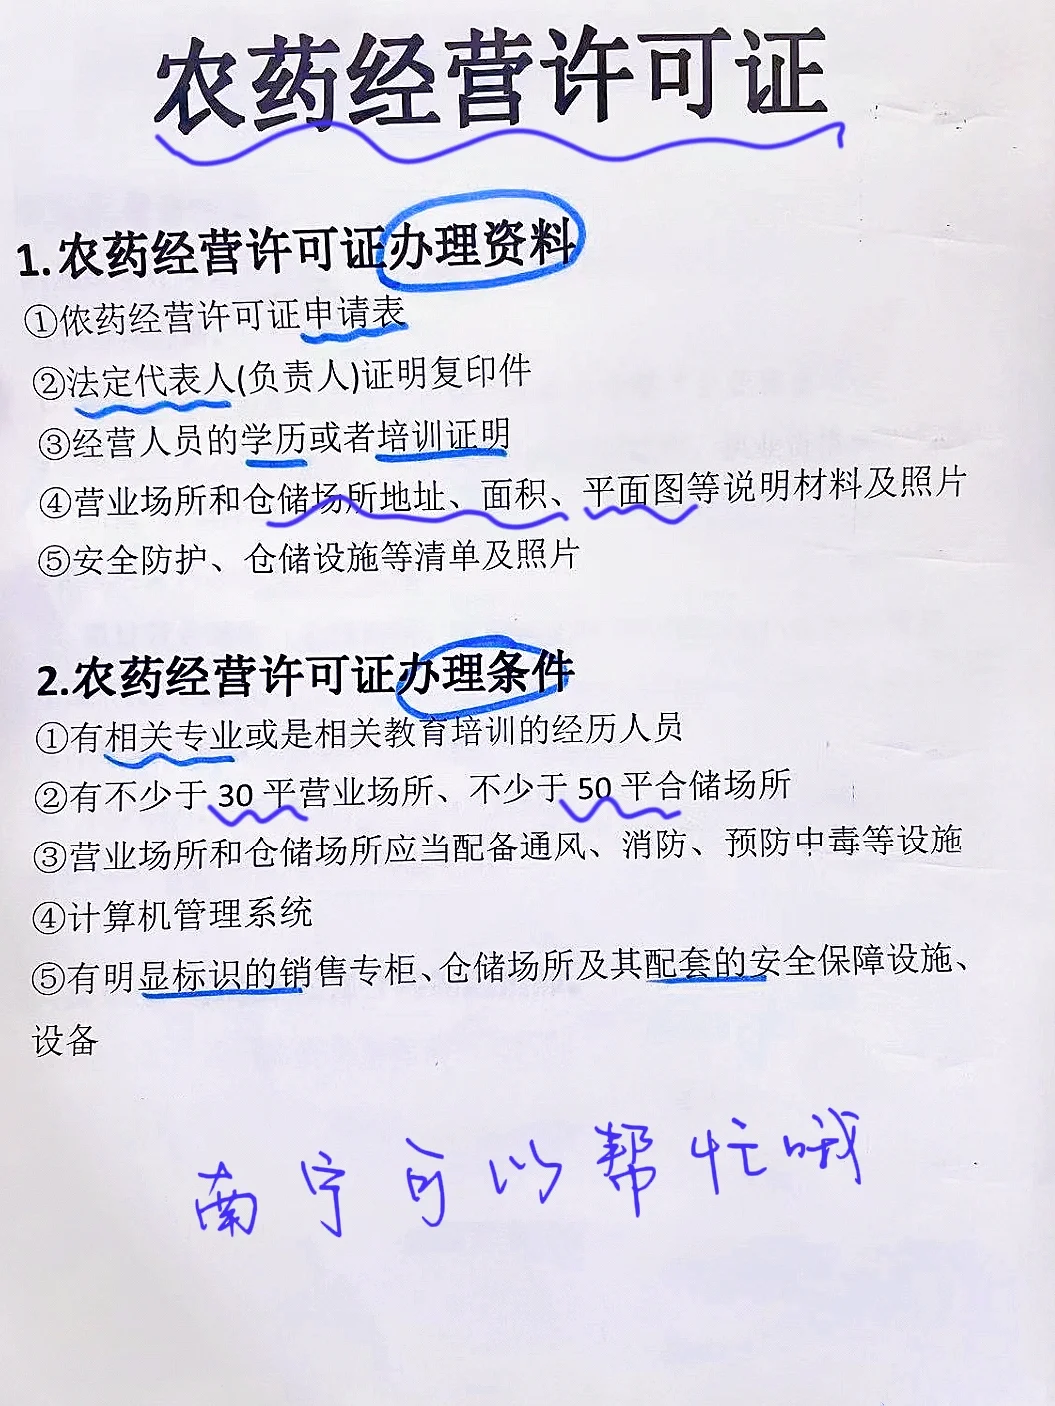 农药经营许可证
1.农药经营许可证办理资料
①侬药经营许可证申请表
②法定代表人(负责人)证明复印件
③经营人员的学历或者培训证明
④营业场所和仓储场所地址、面积、平面图等说明材料及照片
⑤安全防护、仓储设施等清单及照片
2.农药经营许可证办理条件
①有相关专业或是相关教育培训的经历人员
②有不少于 30 平营业场所、不少于 50 平合储场所
③营业场所和仓储场所应当配备通风、消防、预防中毒等设施
④计算机管理系统
⑤有明显标识的销售专柜、仓储场所及其配套的安全保障设施、
设备
南宁可以帮忙哦